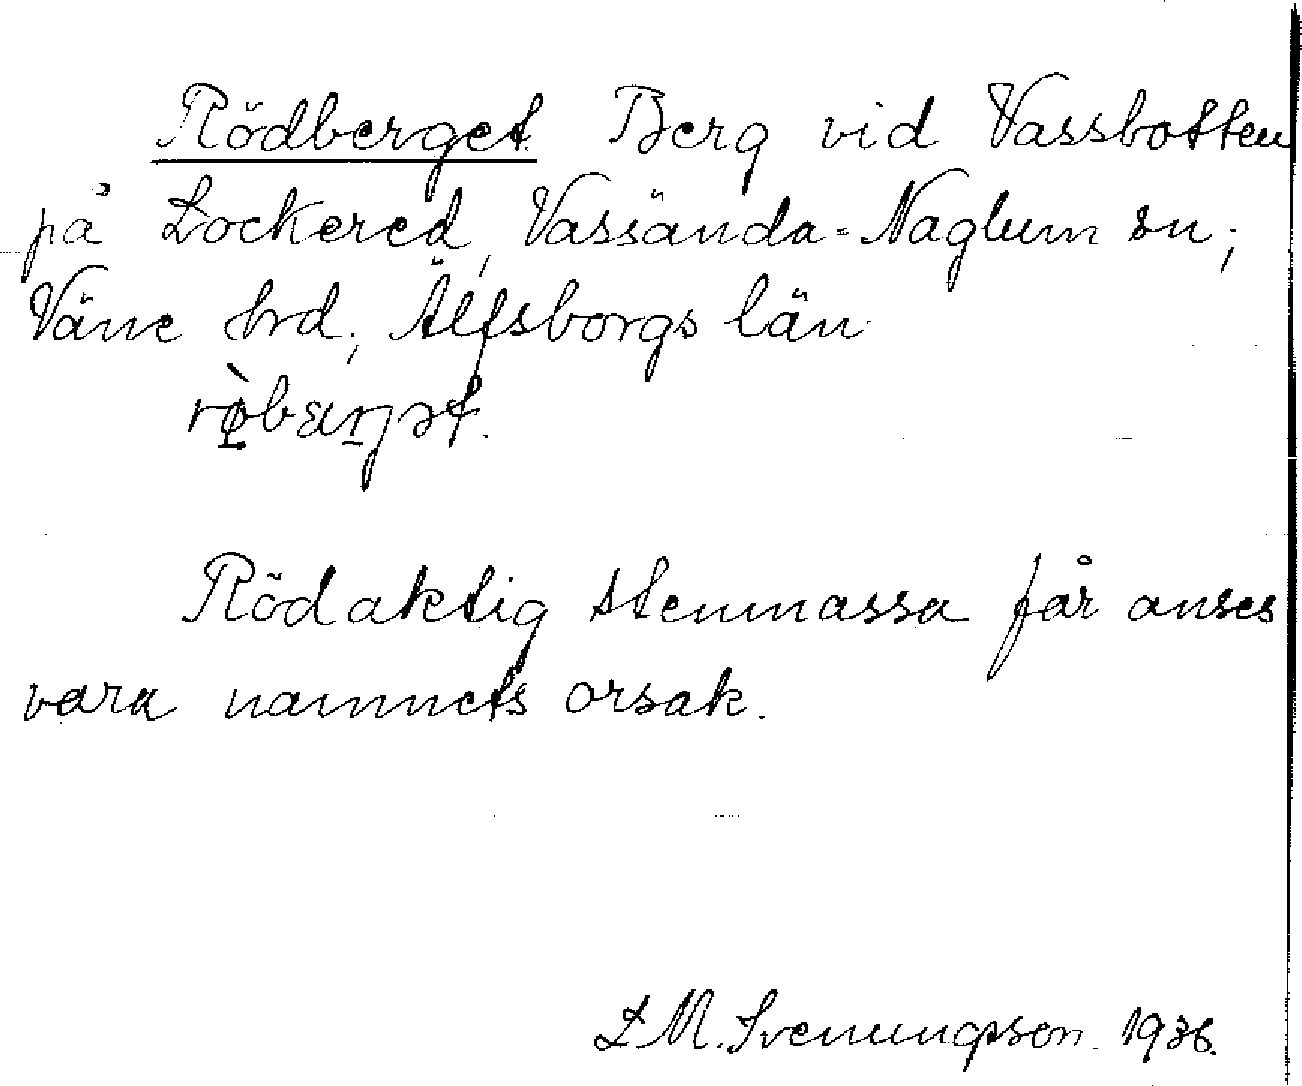 Rödberget. Berg vid Vassbotten
på Lockered, Vassända-Naglum sn;
Väne hrd; Älfsborgs län
Rödaktig stenmassa får anses
vara namnets orsak.
L M. Svenungsson. 1936.